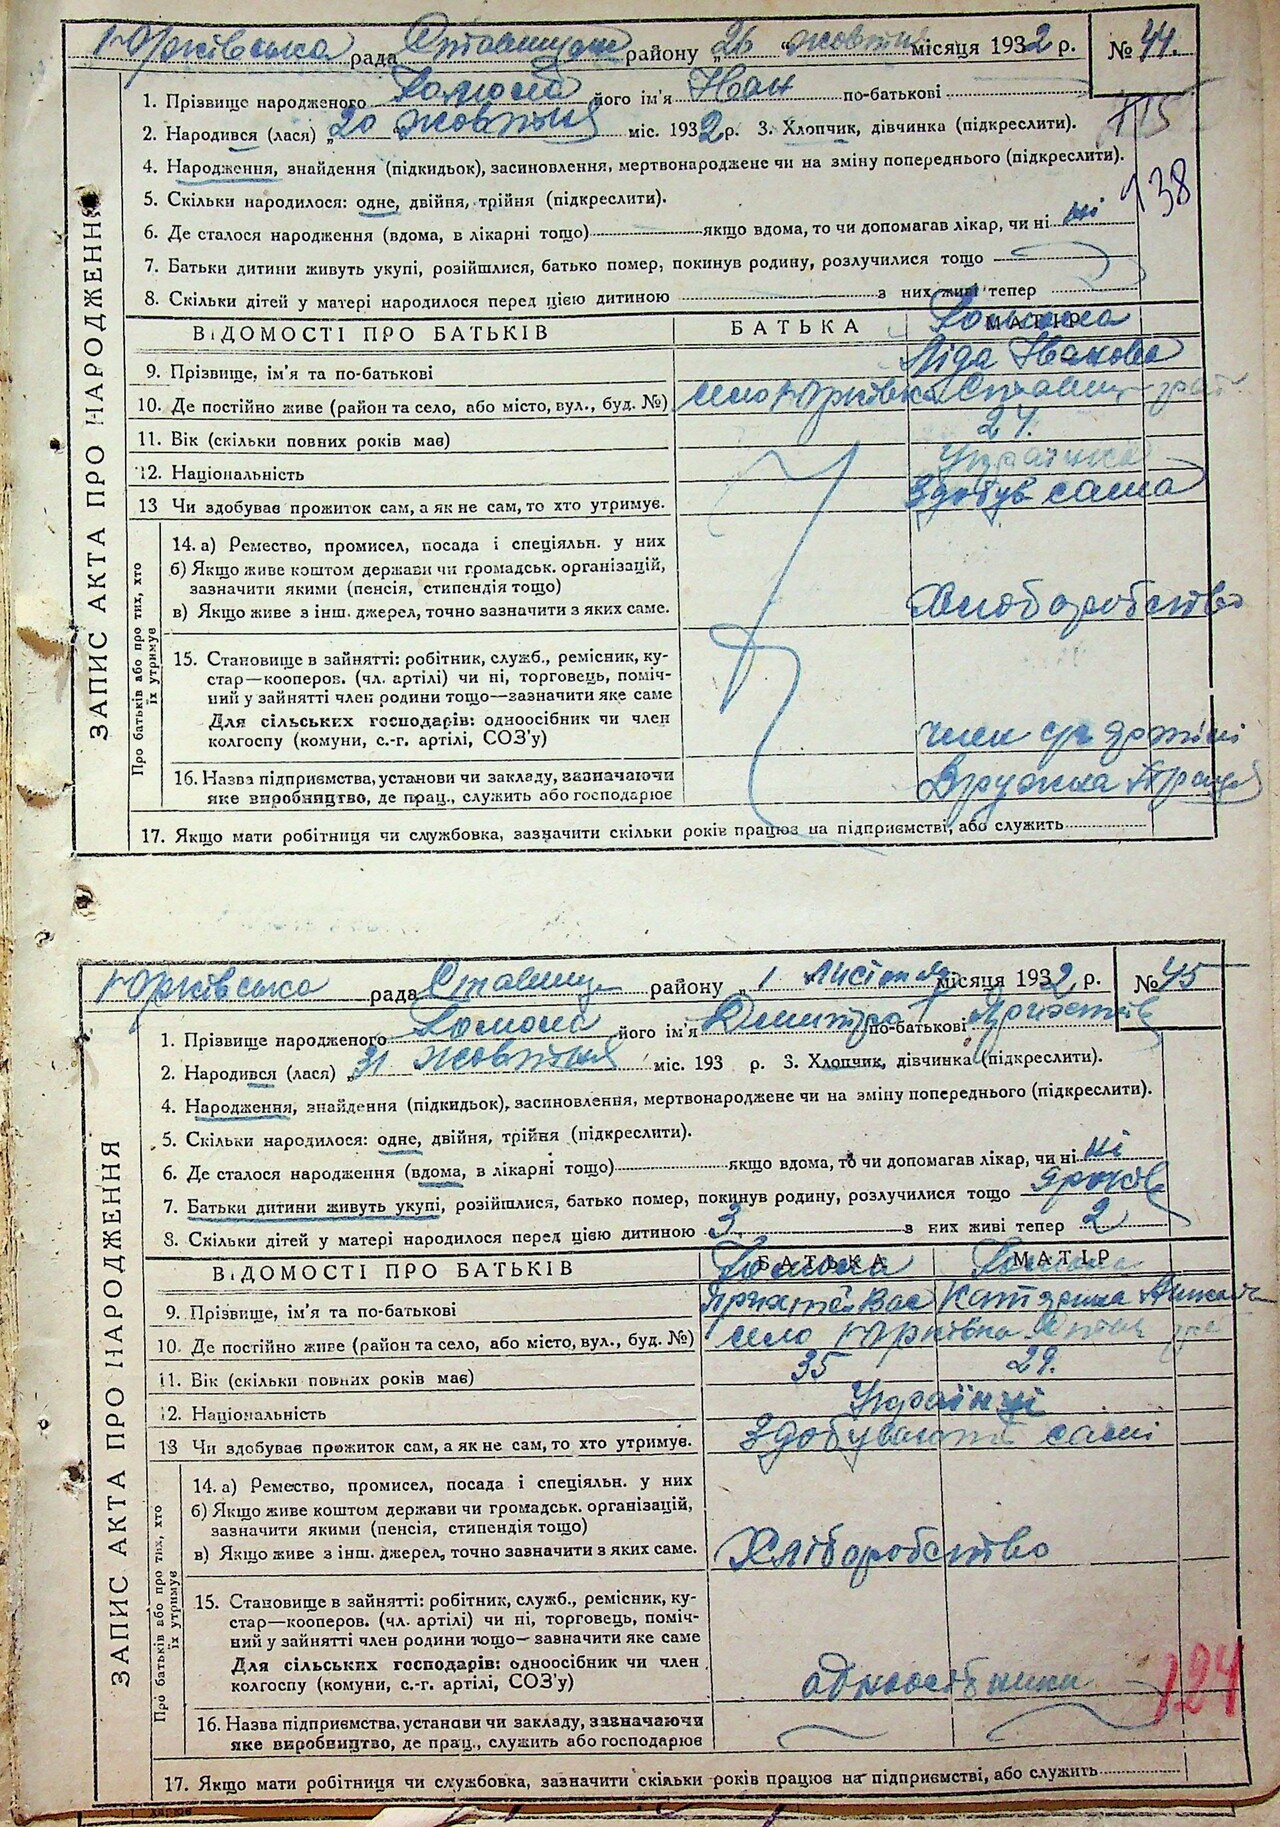 Юрківська рада Ставищан району „26“ жовтня місяця 1932 р. № 44.
1. Прізвище народженого його ім'я Іван по-батькові
115
2. Народився (лася) „20 жовтня міс. 1932 р. 3. Хлопчик, дівчинка (підкреслити).
4. Народження, знайдення (підкидьок), засиновлення, мертвонароджене чи на зміну попереднього (підкреслити).
138
5. Скільки народилося: одне, двійня, трійня (підкреслити).
6. Де сталося народження (вдома, в лікарні тощо) якщо вдома, то чи допомагав лікар, чи ні ні
7. Батьки дитини живуть укупі, розійшлися, батько помер, покинув родину, розлучилися тощо
8. Скільки дітей у матері народилося перед цією дитиною з них живі тепер
ЗАПИС АКТА ПРО НАРОДЖЕННЯ
ВІДОМОСТІ ПРО БАТЬКІВ БАТЬКА МАТІР
9. Прізвище, ім'я та по-батькові Ліда Іванова
10. Де постійно живе (район та село, або місто, вул., буд. №) село Юрківка Ставищ рай
11. Вік (скільки повних років має) 24.
12. Національність Українка
13 Чи здобуває прожиток сам, а як не сам, то хто утримує. Здобув сама
Про батьків або про тих, хто їх утримує
14. а) Ремество, промисел, посада і спеціяльн. у них
б) Якщо живе коштом держави чи громадськ. організацій,
зазначити якими (пенсія, стипендія тощо)
в) Якщо живе з інш. джерел, точно зазначити з яких саме. Хліборобство
15. Становище в зайнятті: робітник, служб., ремісник, ку-
стар—кооперов. (чл. артілі) чи ні, торговець, поміч-
ний у зайнятті член родини тощо—зазначити яке саме
Для сільських господарів: одноосібник чи член
колгоспу (комуни, с.-г. артілі, СОЗ'у) член
16. Назва підприємства, установи чи закладу, зазначаючи
яке виробництво, де прац., служить або господарює Дружна Праця
17. Якщо мати робітниця чи службовка, зазначити скільки років працює на підприємстві, або служить
Юрківська рада Ставищ району „1 листопад місяця 1932 р. № 45
1. Прізвище народженого його ім'я Дмитро по-батькові
2. Народився (лася) „31 жовтня міс. 193 р. 3. Хлопчик, дівчинка (підкреслити).
4. Народження, знайдення (підкидьок), засиновлення, мертвонароджене чи на зміну попереднього (підкреслити).
5. Скільки народилося: одне, двійня, трійня (підкреслити).
6. Де сталося народження (вдома, в лікарні тощо) якщо вдома, то чи допомагав лікар, чи ні ні
7. Батьки дитини живуть укупі, розійшлися, батько помер, покинув родину, розлучилися тощо
8. Скільки дітей у матері народилося перед цією дитиною 3 з них живі тепер 2
ЗАПИС АКТА ПРО НАРОДЖЕННЯ
ВІДОМОСТІ ПРО БАТЬКІВ БАТЬКА МАТІР
9. Прізвище, ім'я та по-батькові Вас Катерина
10. Де постійно живе (район та село, або місто, вул., буд. №) село Юрківка
11. Вік (скільки повних років має) 35 29.
12. Національність Українці
13 Чи здобуває прожиток сам, а як не сам, то хто утримує. Здобувають самі
Про батьків або про тих, хто їх утримує
14. а) Ремество, промисел, посада і спеціяльн. у них
б) Якщо живе коштом держави чи громадськ. організацій,
зазначити якими (пенсія, стипендія тощо)
в) Якщо живе з інш. джерел, точно зазначити з яких саме. Хліборобство
15. Становище в зайнятті: робітник, служб., ремісник, ку-
стар—кооперов. (чл. артілі) чи ні, торговець, поміч-
ний у зайнятті член родини тощо— зазначити яке саме
Для сільських господарів: одноосібник чи член
колгоспу (комуни, с.-г. артілі, СОЗ'у) одноосібники
124
16. Назва підприємства, установи чи закладу, зазначаючи
яке виробництво, де прац., служить або господарює
17. Якщо мати робітниця чи службовка, зазначити скільки років працює на підприємстві, або служить